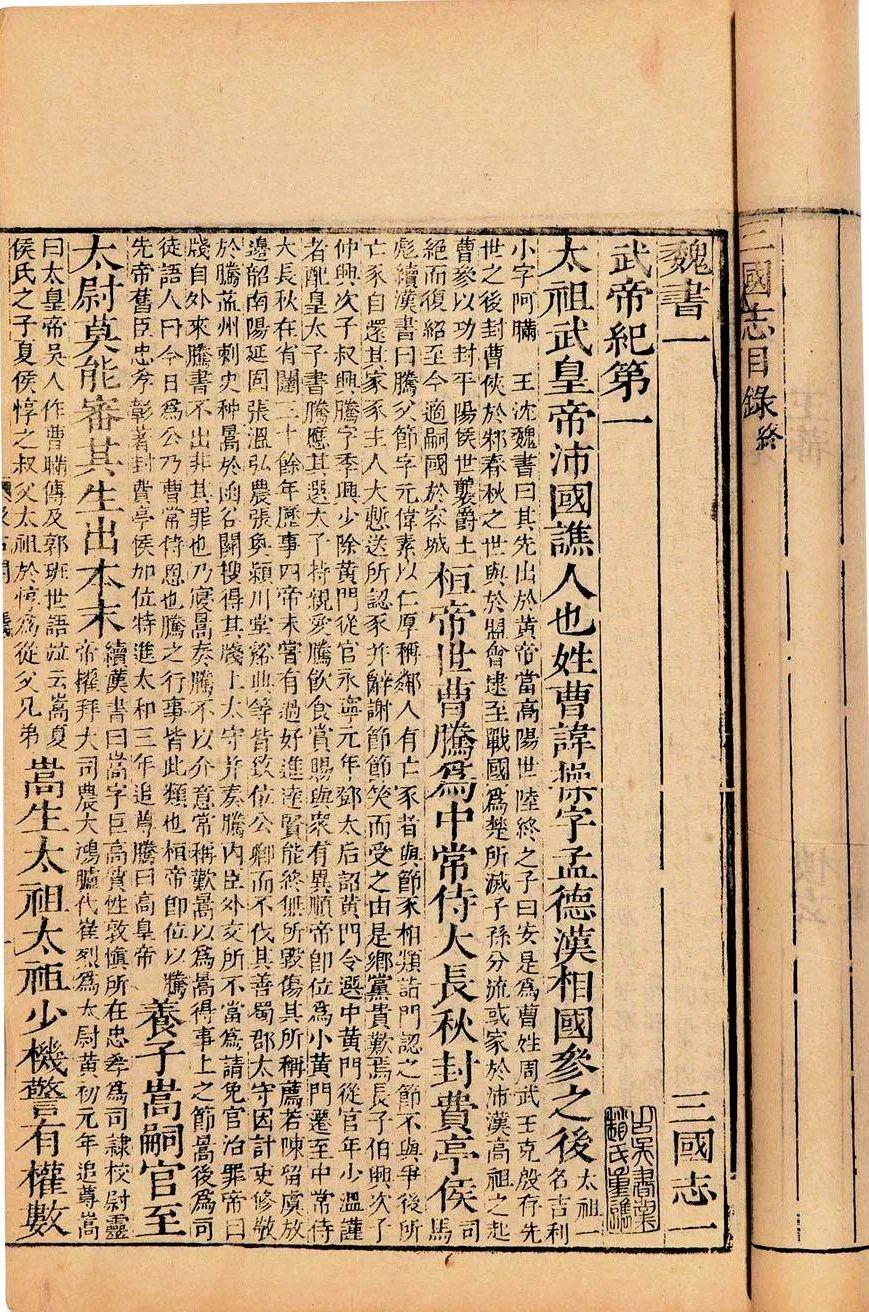 三國志目錄終
魏書一 三國志一
武帝紀第一
太祖武皇帝沛國譙人也姓曹諱操字孟德漢相國參之後
太祖一
名吉利
小字阿瞞 王沈魏書曰其先出於黃帝當高陽世陸終之子曰安是爲曹姓周武王克殷存先
世之後封曹俠於邾春秋之世與於盟會逮至戰國爲楚所滅子孫分流或家於沛漢高祖之起
曹參以功封平陽侯世襲爵土
絕而復紹至今適嗣國於容城
桓帝世曹騰爲中常侍大長秋封費亭侯
司
馬
彪續漢書曰騰父節字元偉素以仁厚稱鄰人有亡豕者與節豕相類詣門認之節不與爭後所
亡豕自還其家豕主人大慙送所認豕并辭謝節節笑而受之由是鄉黨貴歎焉長子伯興次子
仲興次子叔興騰字季興少除黃門從官永寧元年鄧太后詔黃門令選中黃門從官年少溫謹
者配皇太子書騰應其選太子特親愛騰飲食賞賜與眾有異順帝卽位爲小黃門遷至中常侍
大長秋在省闥三十餘年歷事四帝未嘗有過好進達賢能終無所毀傷其所稱薦若陳留虞放
邊韶南陽延固張溫弘農張奐潁川堂谿典等皆致位公卿而不伐其善蜀郡太守因計吏修敬
於騰益州刺史种暠於函谷關搜得其牋上太守并奏騰內臣外交所不當爲請免官治罪帝曰
牋自外來騰書不出非其罪也乃寢暠奏騰不以介意常稱歎暠以爲暠得事上之節暠後爲司
徒語人曰今日爲公乃曹常侍恩也騰之行事皆此類也桓帝卽位以騰
先帝舊臣忠孝彰著封費亭侯加位特進太和三年追尊騰曰高皇帝
養子嵩嗣官至
太尉莫能審其生出本末
續漢書曰嵩字巨高質性敦愼所在忠孝爲司隸校尉靈
帝擢拜大司農大鴻臚代崔烈爲太尉黃初元年追尊嵩
曰太皇帝吳人作曹瞞傳及郭班世語並云嵩夏
侯氏之子夏侯惇之叔父太祖於惇爲從父兄弟
嵩生太祖太祖少機警有權數